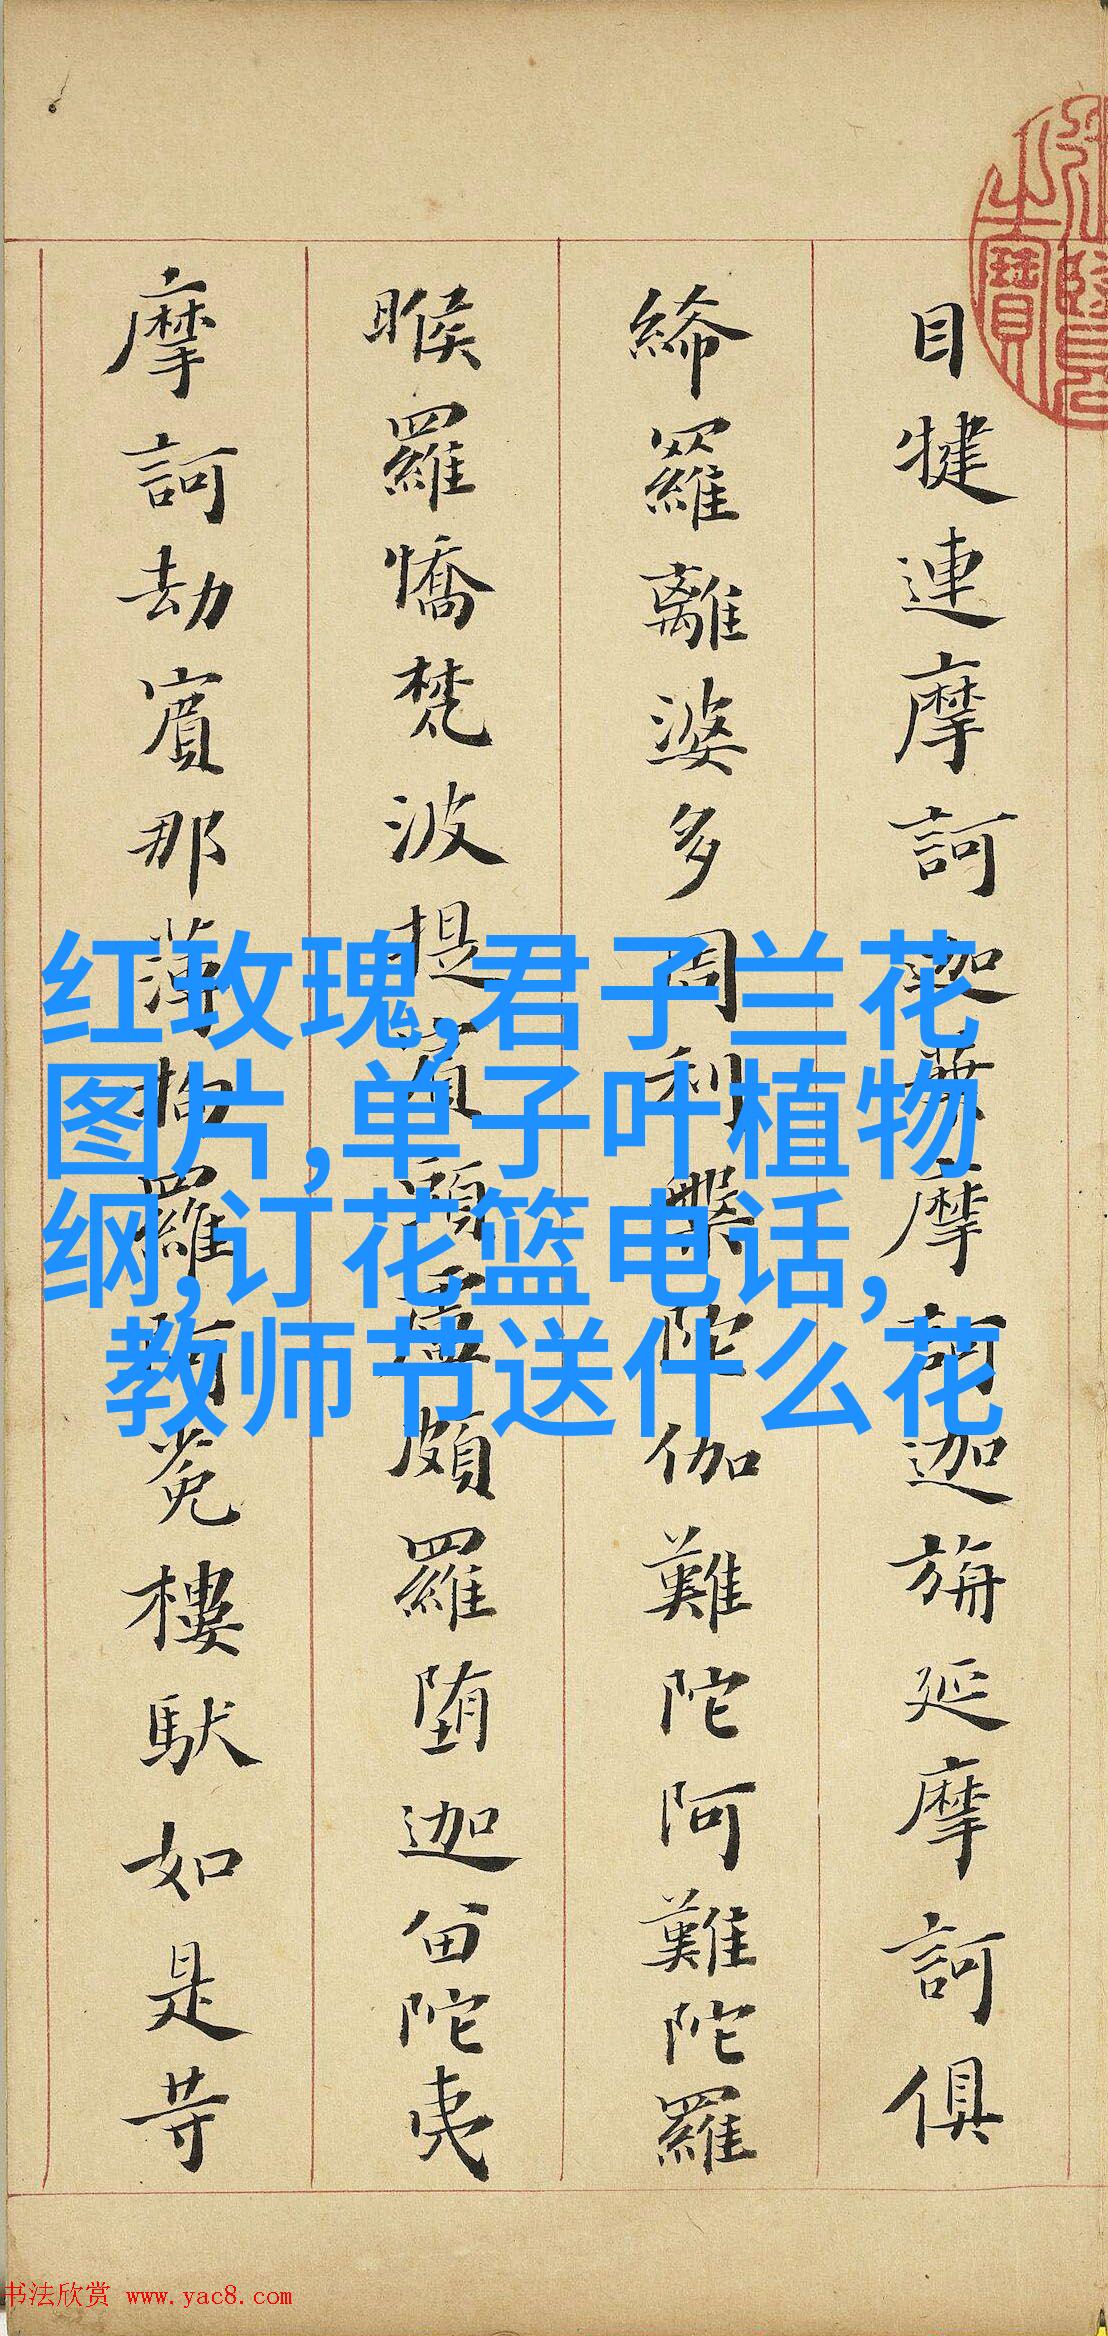 目犍連摩訶迦葉摩訶迦旃延摩訶俱
絺羅離婆多周利槃陀伽難陀阿難陀羅
睺羅憍梵波提賓頭盧頗羅堕迦留陀夷
摩訶劫賓那薄拘羅阿㝹樓馱如是等
红玫瑰,君子兰花
图片,单子叶植物
纲,订花篮电话,
教师节送什么花
之寶
书法欣赏 www.yac8.com